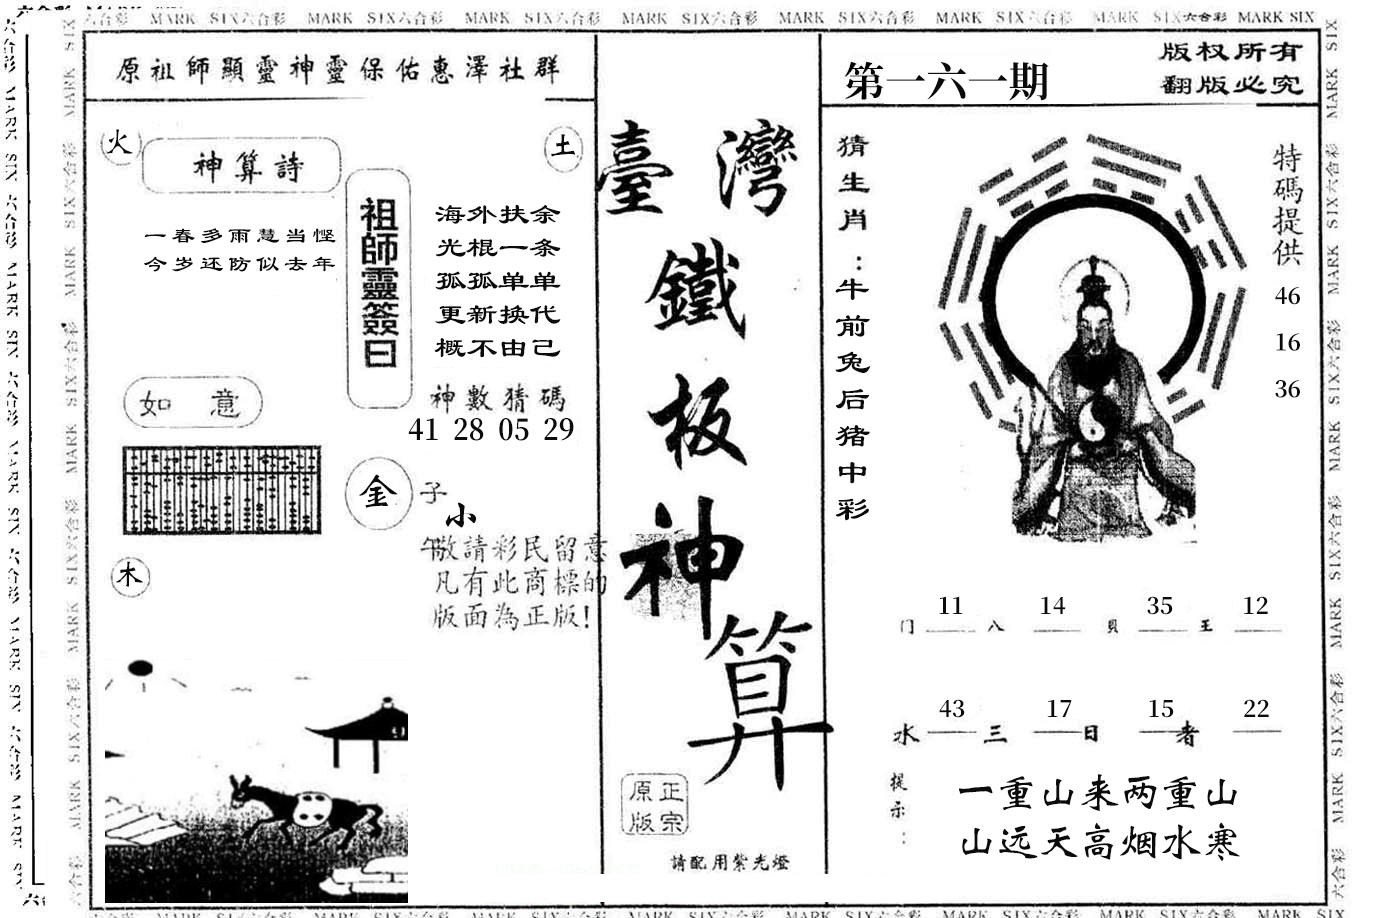 六合彩 MARK SIX六合彩 MARK SIX六合彩 MARK SIX六合彩 MARK SIX六合彩 MARK SIX六合彩 MARK SIX六合彩 MARK SIX六合彩 MARK SIX
原祖師顯靈神靈保佑惠澤社群
火
神算詩
土
一春多雨慧当怪
今岁还防似去年
祖師靈簽曰
海外扶余
光棍一条
孤孤单单
更新换代
概不由己
神數猜碼
41 28 05 29
如 意
金
子
小
午
敬請彩民留意
凡有此商標的
版面為正版!
木
臺灣
鐵板神算
正宗
原版
請配用紫光燈
第一六一期
版权所有
翻版必究
猜生肖:牛前兔后猪中彩
特碼提供
46
16
36
11 14 35 12
门 八 貝 王
43 17 15 22
水 三 日 者
提示:
一重山来两重山
山远天高烟水寒